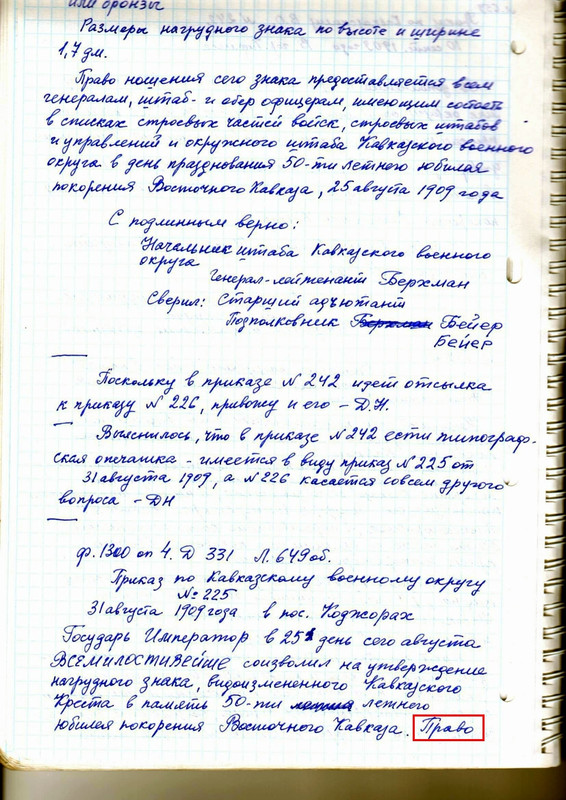 или бронзы
Размеры нагрудного знака по высоте и ширине
1,7 дм.
Право ношения сего знака предоставляется всем
генералам, штаб- и обер офицерам, имеющим состоять
в списках строевых частей войск, строевых штабов
и управлений и окружного штаба Кавказского военного
округа в день празднования 50-ти летнего юбилея
покорения Восточного Кавказа, 25 августа 1909 года
С подлинным верно:
Начальник штаба Кавказского военного
округа
Генерал-лейтенант Берхман
Сверил: Старший адъютант
Подполковник Берхман Бейер
Бейер
Поскольку в приказе № 242 идет отсылка
к приказу № 226, привожу и его – Д.Н.
Выяснилось, что в приказе № 242 есть типограф-
ская опечатка – имеется в виду приказ № 225 от
31 августа 1909, а № 226 касается совсем другого
вопроса – ДН
ф. 1300 оп 4. Д 331 Л. 649 об.
Приказ по Кавказскому военному округу
№ 225
31 августа 1909 года в пос. Коджорах
Государь Император в 25 день сего августа
ВСЕМИЛОСТИВЕЙШЕ соизволил на утверждение
нагрудного знака, видоизмененного Кавказского
Креста в память 50-ти летнего
юбилея покорения Восточного Кавказа. Право